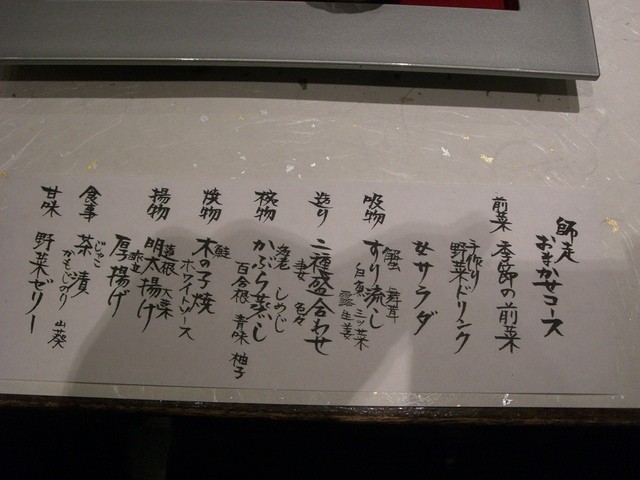 師走
おまかせコース
前菜 季節の前菜
手作り
野菜ドリンク
女サラダ
吸物 すり流し
蟹 舞茸
白魚 三ッ葉
露生姜
造り 二種盛合わせ
妻 色々
椀物 かぶら蒸し
海老 しめじ
百合根 青味 柚子
焼物 木の子焼
鮭
ホワイトソース
揚物 明太揚げ
蓮根 大葉
厚揚げ
食事 茶漬
じゃこ
山葵
甘味 野菜ゼリー